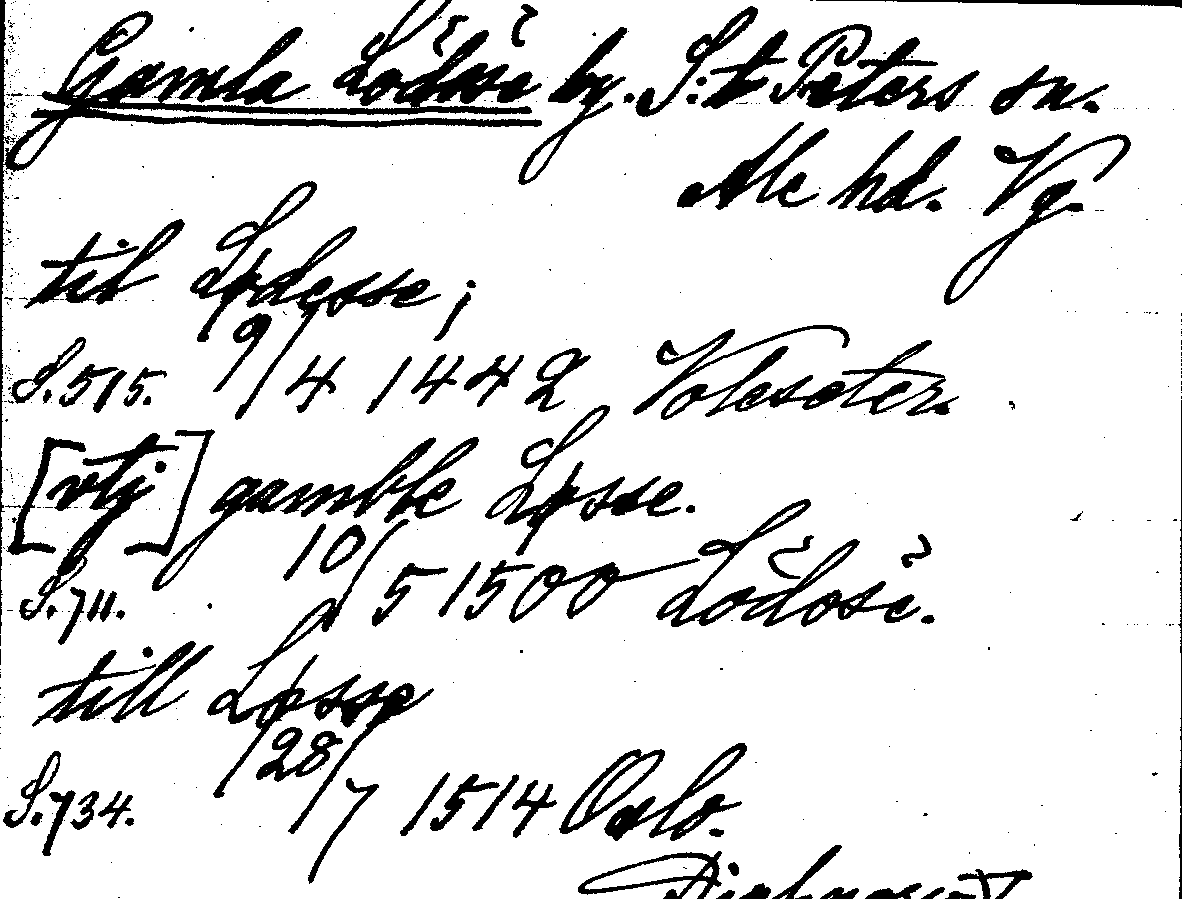 Gamla Lödöse by. S:t Peters sn.
Ale hd. Vg.
til Lødesse;
S.515. 9/4 1442 Voleseter.
[vtj] gamble Løsse.
S.711. 10/5 1500 Lödöse.
till Løsse
S.734. 28/7 1514 Oslo.